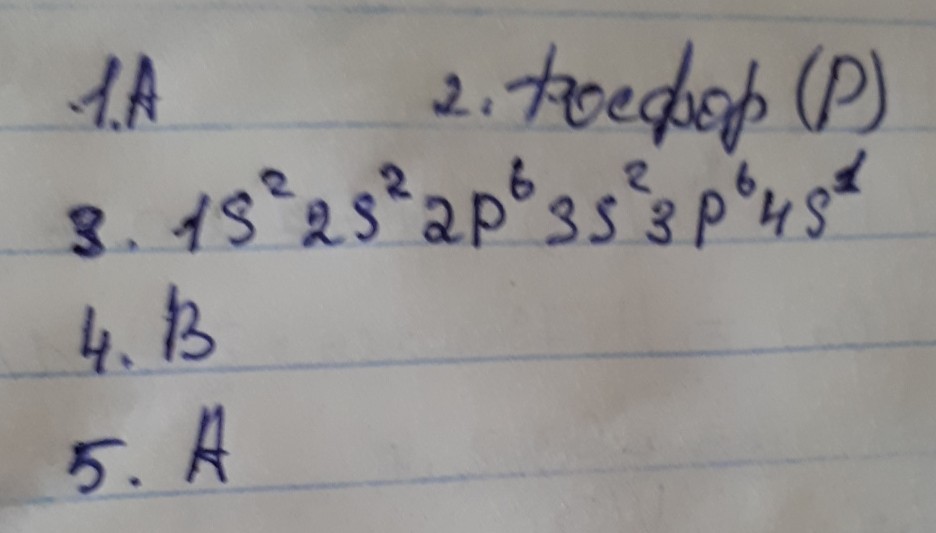 1. А 2. Фосфор (P)
3. 1S² 2S² 2P⁶ 3S² 3P⁶ 4S¹
4. В
5. А